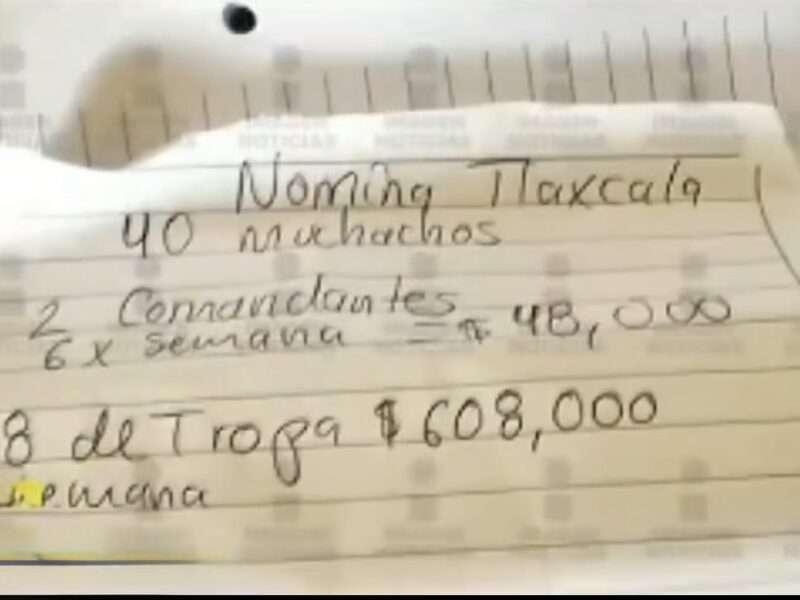 Nomina Tlaxcala
40 muchachos
2 Comandantes
6 x semana = $ 48,000
8 de Tropa $ 608,000
semana